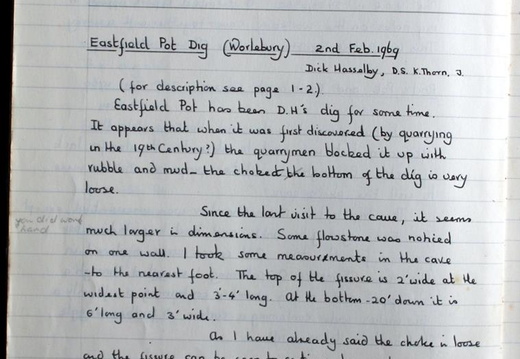 Eastfield Pot Dig (Worlebury) 2nd Feb. 1969
Dick Hasselby, D.S. K.Thorn, J.
(for description see page 1-2.)
Eastfield Pot has been D.H's dig for some time.
It appears that when it was first discovered (by quarrying
in the 19th Century?) the quarrymen blocked it up with
rubble and mud - the choked the bottom of the dig is very
loose.
Since the last visit to the cave, it seems
you did work hard
much larger in dimensions. Some flowstone was noticed
on one wall. I took some measurements in the cave
-to the nearest foot. The top of the fissure is 2' wide at the
widest point and 3'-4' long. At the bottom -20' down it is
6' long and 3' wide.
As I have already said the choke is loose
and the fissure can be seen to